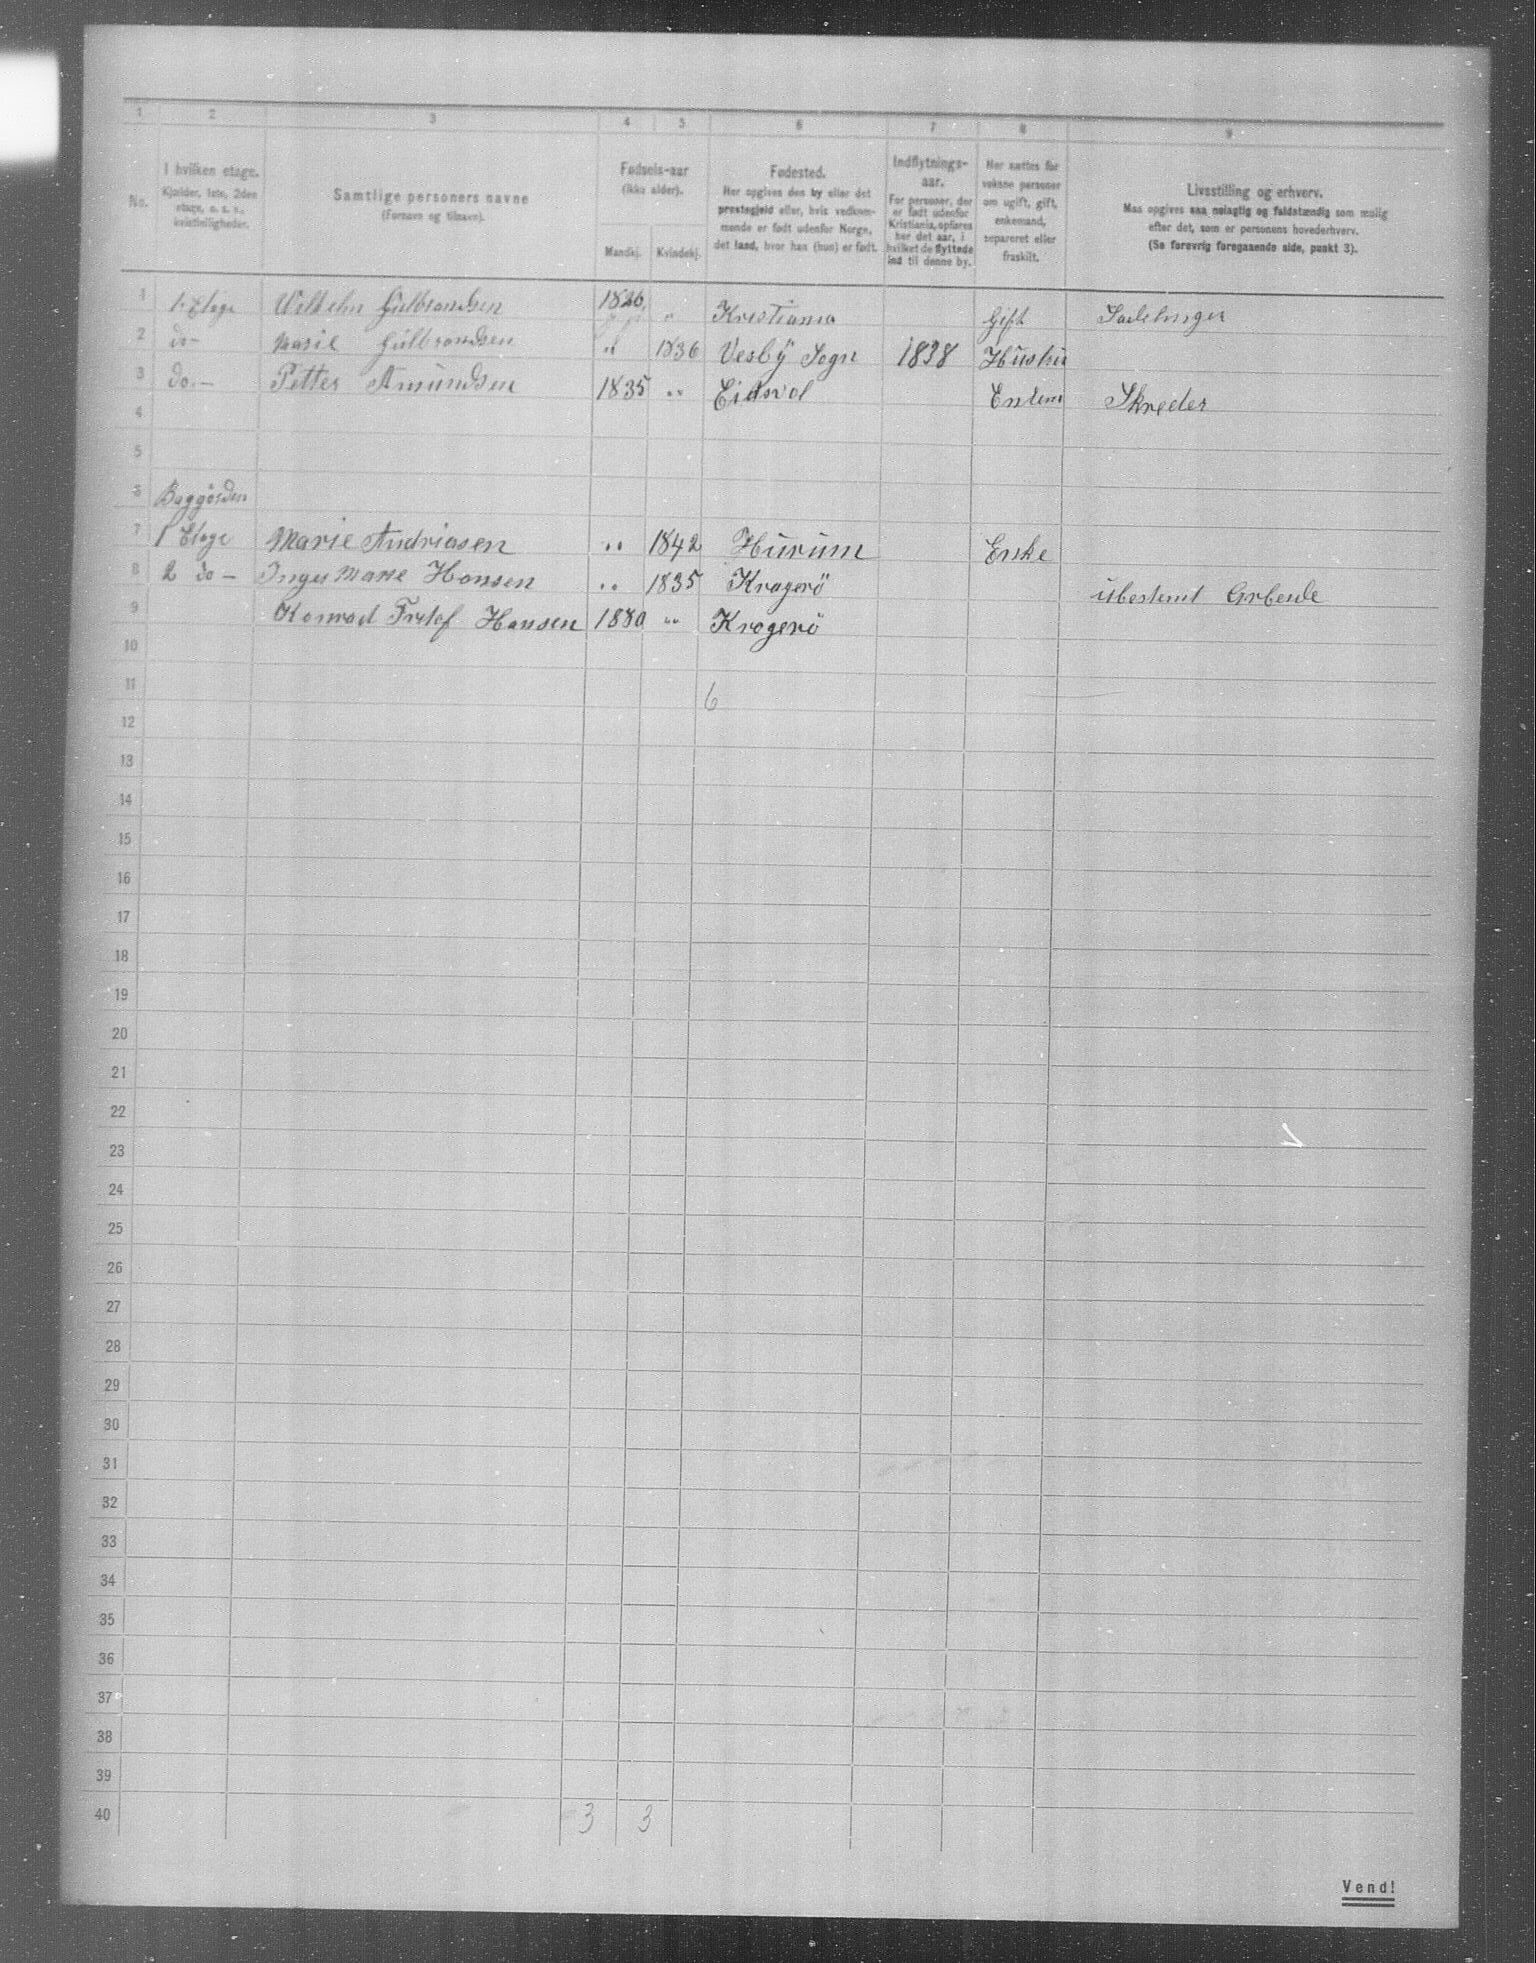 1 2 3 4 5 6 7 8 9
No.
I hvilken etage.
Kjælder, 1ste, 2den
etage, o. s. v.,
kvistleiligheder.
Samtlige personers navne
(Fornavn og tilnavn).
Fødsels-aar
(ikke alder).
Mandkj. Kvindekj.
Fødested.
Her opgives den by eller det
prestegjeld eller, hvis vedkom-
mende er født udenfor Norge,
det land, hvor han (hun) er født.
Indflytnings-
aar.
For personer, der
er født udenfor
Kristiania, opføres
her det aar, i
hvilket de flyttede
ind til denne by.
Her sættes for
voksne personer
om ugift, gift,
enkemand,
separeret eller
fraskilt.
Livsstilling og erhverv.
Maa opgives saa nøiagtig og fuldstændig som mulig
efter det, som er personens hovederhverv.
(Se forøvrig foregaaende side, punkt 3).
1 1. Etage Wilhelm Gulbrandsen 1826 " Kristiania Gift
2 do - Marie Gulbrandsen " 1836 Vesby Sogn 1838 Hustru
3 do. - Petter Amundsen 1835 " Eidsvol Enkem Skreder
4
5
6 Baggården
7 1 Etage Marie Andriasen " 1842 Hurum Enke
8 2 do - Inger Marie Hansen " 1835 Kragerö ubestemt Arbeide
9 Konrad Hansen 1880 " Kragerö
10
11 6
12
13
14
15
16
17
18
19
20
21
22
23
24
25
26
27
28
29
30
31
32
33
34
35
36
37
38
39
40 3 3
Vend!